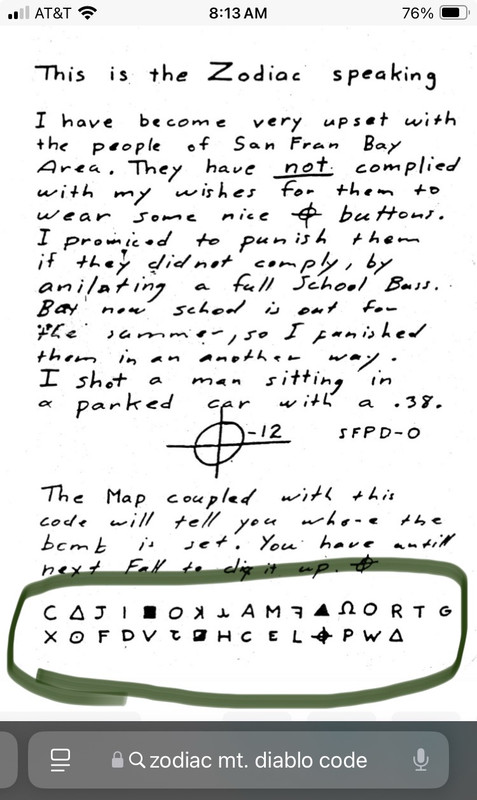 AT&T 8:13 AM 76%
This is the Zodiac speaking
I have become very upset with
the people of San Fran Bay
Area. They have not complied
with my wishes for them to
wear some nice ⌖ buttons.
I promiced to punish them
if they did not comply, by
anilating a full School Buss.
But now school is out for
the summer, so I punished
them in an another way.
I shot a man sitting in
a parked car with a .38.
⌖-12 SFPD-0
The Map coupled with this
code will tell you where the
bomb is set. You have untill
next Fall to dig it up. ⌖
C Δ J I ■ O ꓘ ⅄ A M ꟻ ▲ Ω O R T G
X ⊙ F D V Ʇ ◪ H C E L ⌖ P W Δ
zodiac mt. diablo code